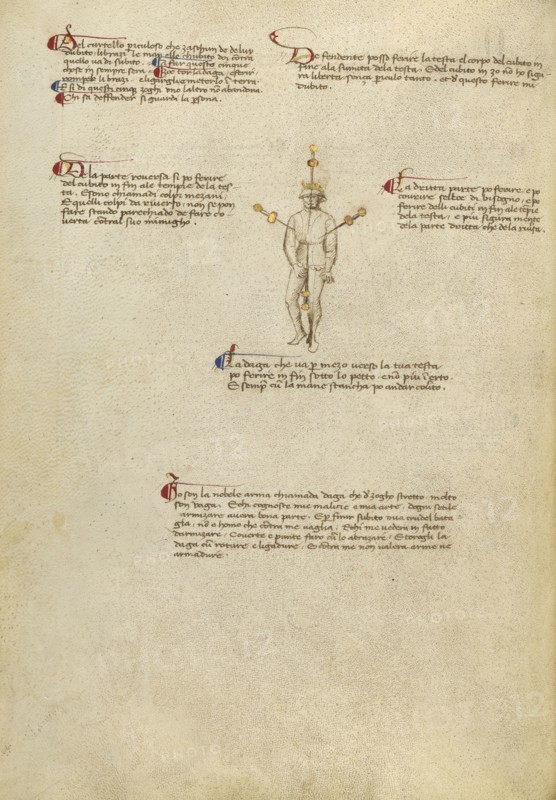 Del cortello piculoso che zaschun de dubitar
dubito. li brazi le man elli chubity dei contra
quello va di subito. E fur queste cinque
chose in sempre sera. Zoe tor la daga e ferir
rompere li brazi e ligarghe metterlo in terra
E si di questi cinque zoghi uno laltro no abandona.
Chi sa deffender si guardi la persona.
De fendente posso ferire la testa el corpo del cubito in
fine ala sumita dela testa. E del cubito in zo non ho sigu-
ra liberta senza periculo tanto. e d questo ferire mi
dubito.
De la parte reversa si po ferire
del cubito in fin ale temple de la tes-
ta. E sono chiamadi colpi mezani.
E quelli colpi da riverso. non se pon
fare stando parechiado de fare co-
verta contra lo suo inimigho.
La dritta parte po ferire. e po
covrire se l e de bisogno. e po
ferire delli cubiti in fin ale tempie
dela testa. e piu sigura mente
de la parte dritta che de la riversa.
La daga che va per mezo verso la tua testa
po ferire in fin sotto lo petto. e no piu in erto.
E sempre cum la mane stancha po andar coverto.
Io son la nobele arma chiamada daga che d zogho stretto molto
son vaga. E chi cognosce mie malicie e mia arte. dogni sotile
armizare avera bona parte. E per finir subito mia crudel bata-
glia. no e homo che contra me vaglia. E chi me vedera in fatto
darmizare. Coverte e punte faro cum lo abrazare. E torogli la
daga cum roture e ligadure. E contra me non valera arme ne
armadure.